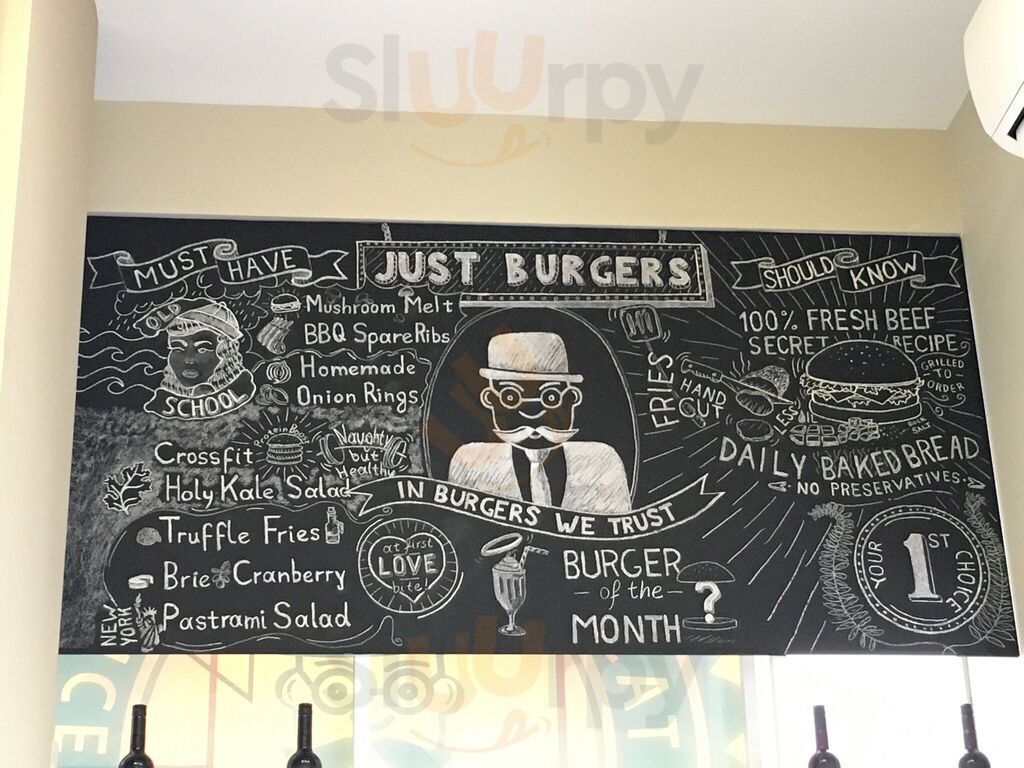 Sluurpy
MUST HAVE
OLD
SCHOOL
Mushroom Melt
BBQ Spare Ribs
Homemade
Onion Rings
Crossfit
Protein Boost
Naughty
but
Healthy
Holy Kale Salad
Truffle Fries
Brie Cranberry
NEW
YORK
Pastrami Salad
at first
LOVE
bite!
JUST BURGERS
IN BURGERS WE TRUST
BURGER
- of the -
MONTH
?
SHOULD KNOW
100% FRESH BEEF
SECRET RECIPE
GRILLED
TO
ORDER
FRIES
HAND
CUT
LESS
ROCK
SALT
DAILY BAKED BREAD
NO PRESERVATIVES
YOUR
1ST
CHOICE
Sluurpy